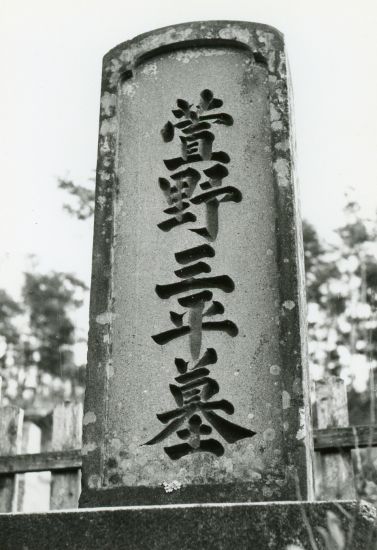 萱野三平墓